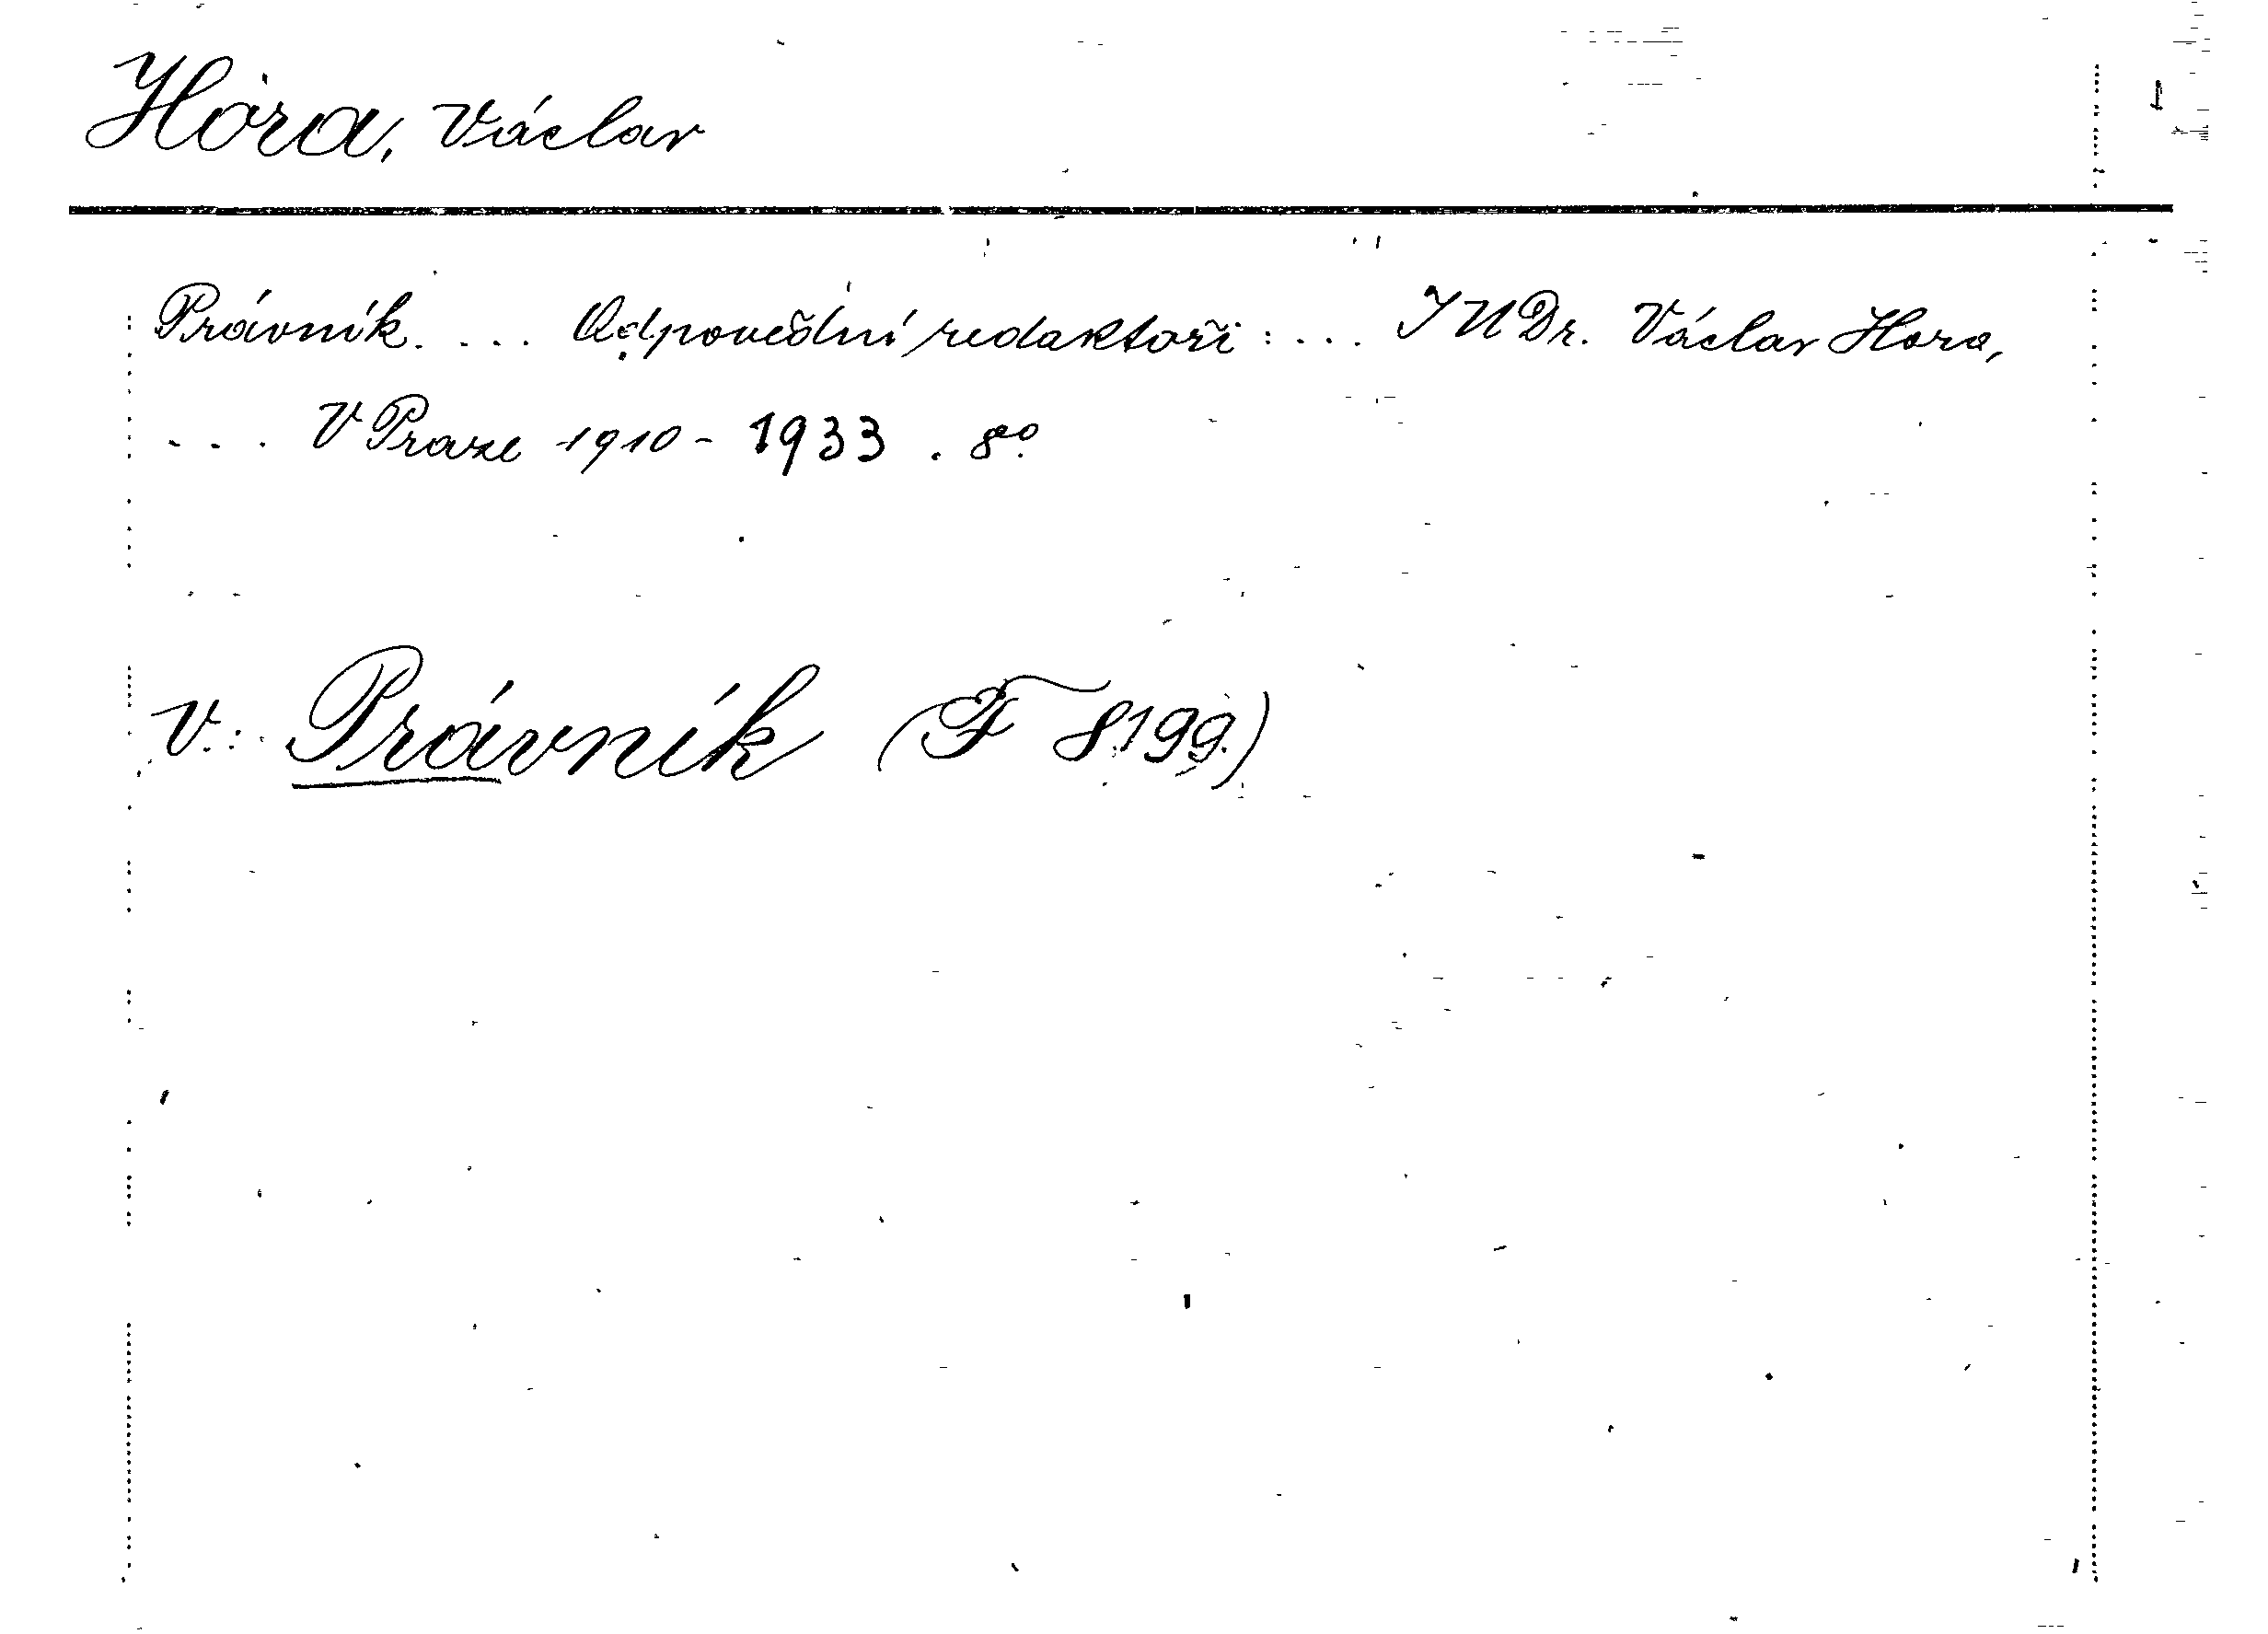 Hora, Václav
Právník. ... Odpovědní redaktoři: ... JUDr. Václav Hora,
... V Praze 1910-1933. 8°.
V.: Právník (F 8199)